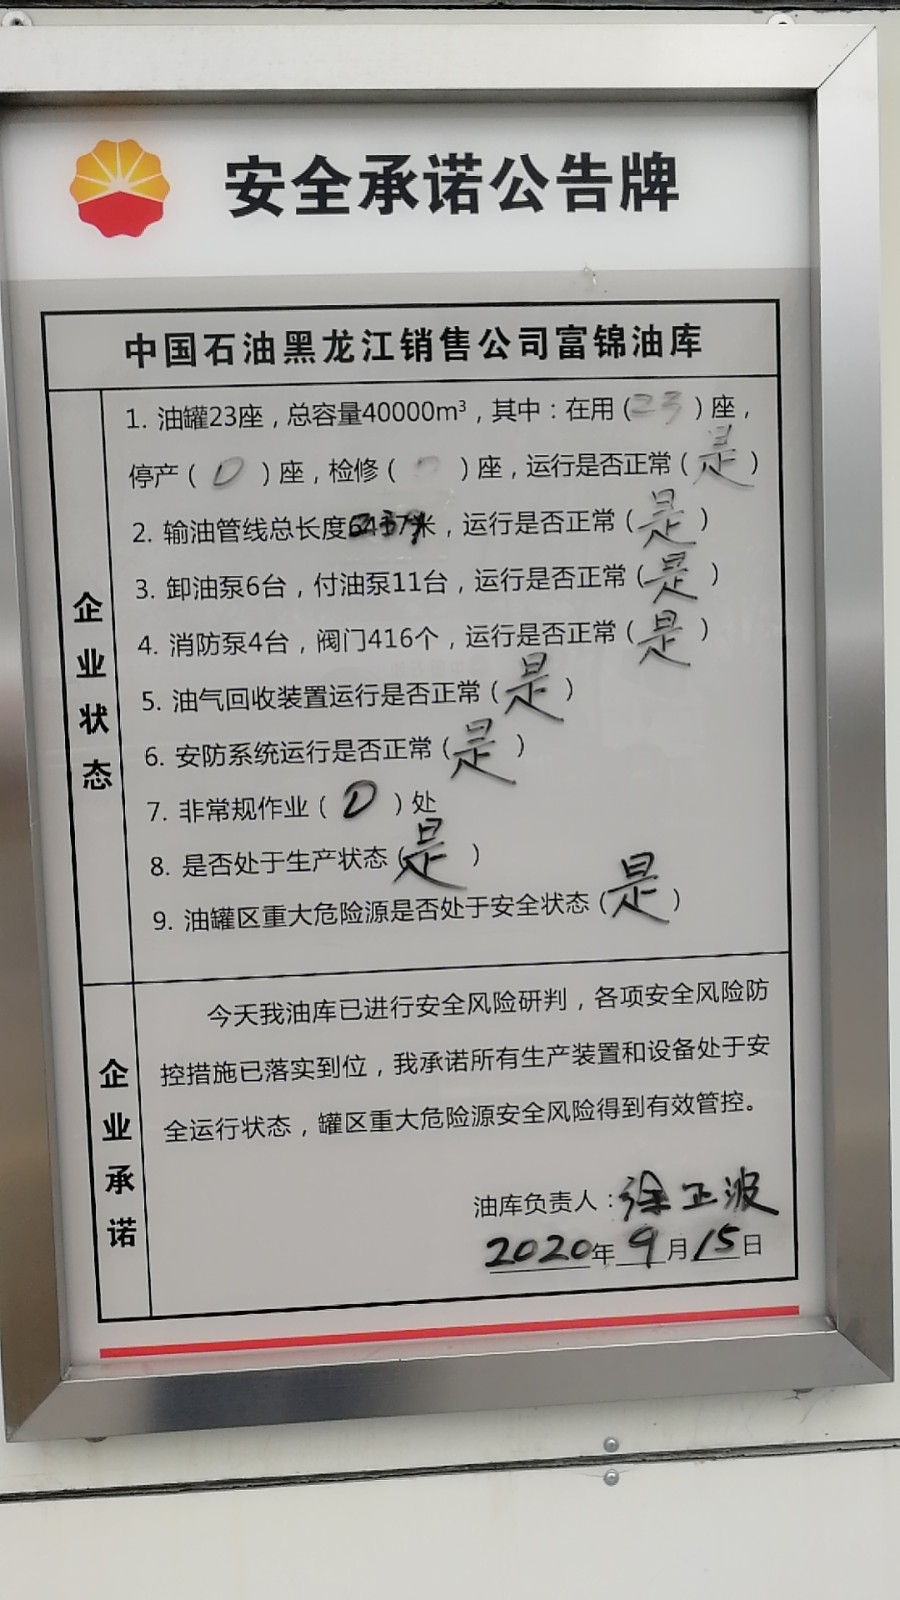 安全承诺公告牌
中国石油黑龙江销售公司富锦油库
企业状态
1. 油罐23座，总容量40000m³，其中：在用（23）座，
停产（0）座，检修（0）座，运行是否正常（是）
2. 输油管线总长度米，运行是否正常（是）
3. 卸油泵6台，付油泵11台，运行是否正常（是）
4. 消防泵4台，阀门416个，运行是否正常（是）
5. 油气回收装置运行是否正常（是）
6. 安防系统运行是否正常（是）
7. 非常规作业（0）处
8. 是否处于生产状态（是）
9. 油罐区重大危险源是否处于安全状态（是）
企业承诺
今天我油库已进行安全风险研判，各项安全风险防
控措施已落实到位，我承诺所有生产装置和设备处于安
全运行状态，罐区重大危险源安全风险得到有效管控。
油库负责人：徐正波
2020年9月15日